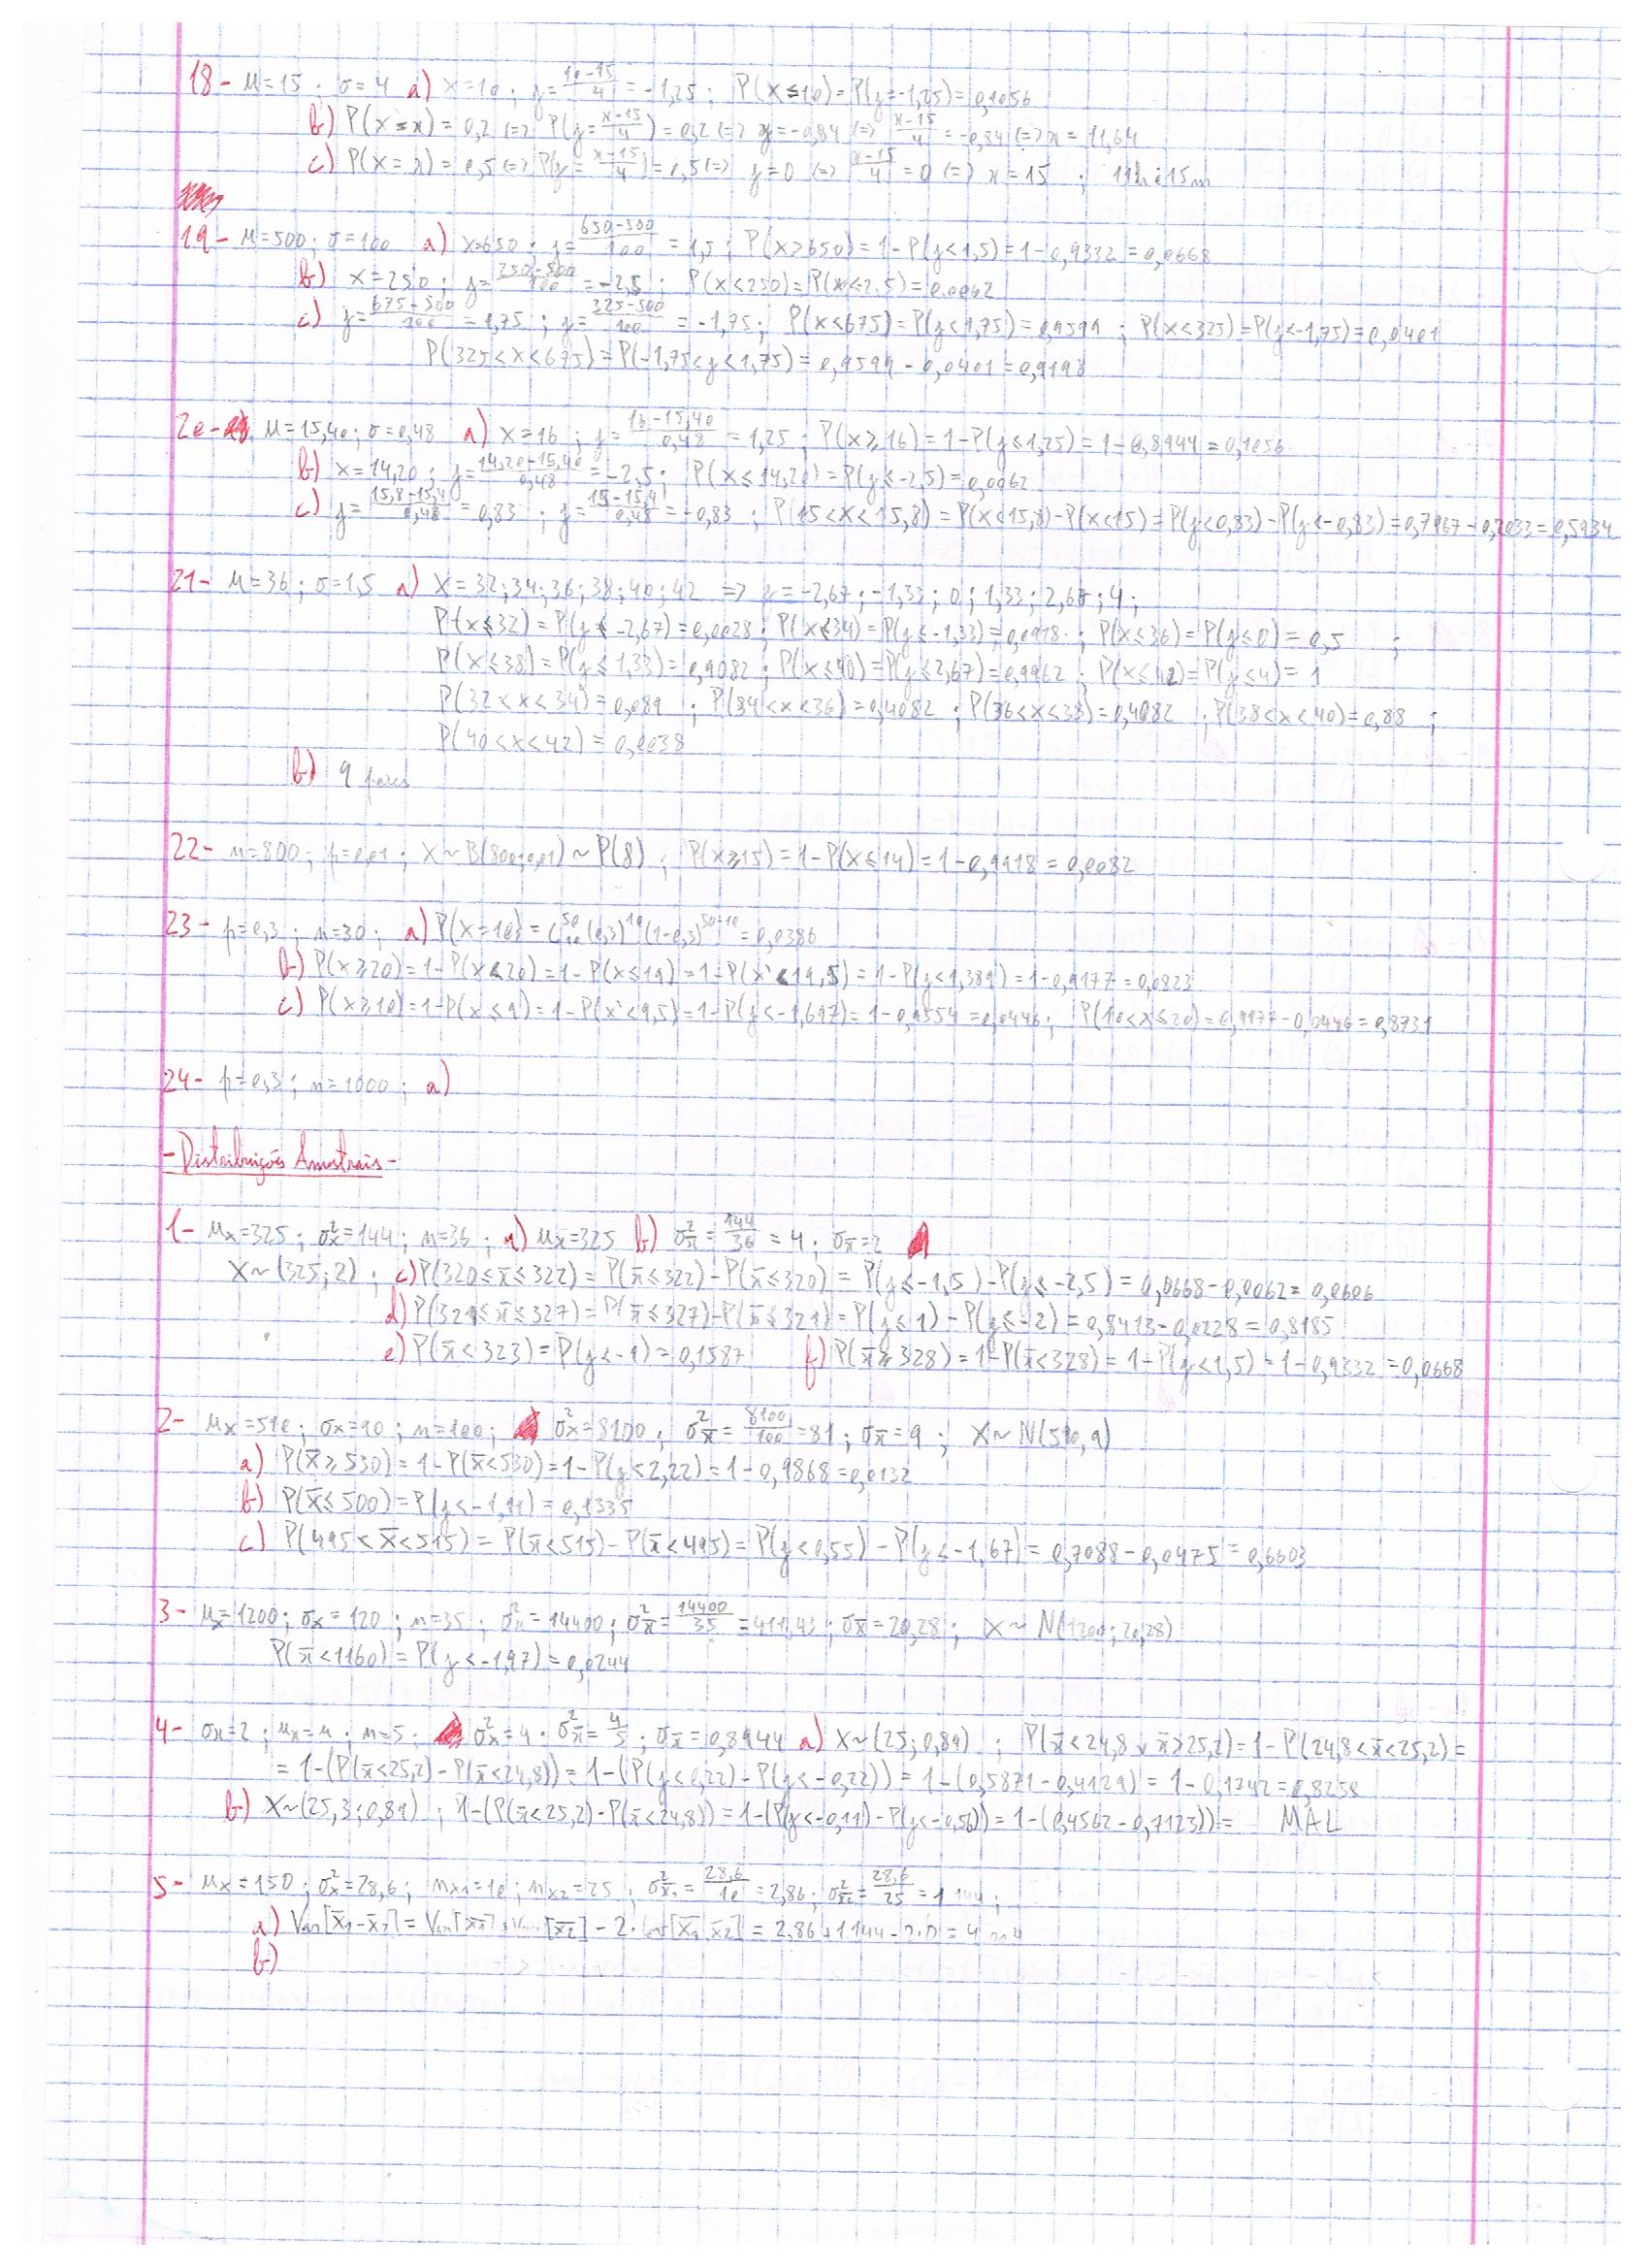 18- μ=15 ; σ=4 a) x=10 ; z=(10-15)/4 = -1,25 ; P(X≤10)=P(z≤-1,25)=0,1056
b) P(X≤x)=0,2 (=) P(z=(x-15)/4)=0,2 (=) z=-0,84 (=) (x-15)/4=-0,84 (=) x=11,64
c) P(X=x)=0,5 (=) P(z=(x-15)/4)=0,5 (=) z=0 (=) (x-15)/4=0 (=) x=15 ; 11h e 15m
19- μ=500 ; σ=100 a) x=650 ; z=(650-500)/100=1,5 ; P(X>650)=1-P(z<1,5)=1-0,9332=0,0668
b) x=250 ; z=(250-500)/100=-2,5 ; P(X<250)=P(X<2,5)=0,0062
c) z=(675-500)/100=1,75 ; z=(325-500)/100=-1,75 ; P(X<675)=P(z<1,75)=0,9599 ; P(X<325)=P(z<-1,75)=0,0401
P(325<X<675)=P(-1,75<z<1,75)=0,9599-0,0401=0,9198
20- μ=15,40 ; σ=0,48 a) x=16 ; z=(16-15,40)/0,48=1,25 ; P(X≥16)=1-P(z≤1,25)=1-0,8944=0,1056
b) x=14,20 ; z=(14,20-15,40)/0,48=-2,5 ; P(X≤14,20)=P(z≤-2,5)=0,0062
c) z=(15,8-15,4)/0,48=0,83 ; z=(15-15,4)/0,48=-0,83 ; P(15<X<15,8)=P(X<15,8)-P(X<15)=P(z<0,83)-P(z<-0,83)=0,7967-0,2033=0,5934
21- μ=36 ; σ=1,5 a) X=32;34;36;38;40;42 => z=-2,67;-1,33;0;1,33;2,67;4;
P(X≤32)=P(z≤-2,67)=0,0028 ; P(X≤34)=P(z≤-1,33)=0,0918 ; P(X≤36)=P(z≤0)=0,5 ;
P(X≤38)=P(z≤1,33)=0,9082 ; P(X≤40)=P(z≤2,67)=0,9962 ; P(X≤42)=P(z≤4)=1
P(32<X<34)=0,089 ; P(34<X<36)=0,4082 ; P(36<X<38)=0,4082 ; P(38<X<40)=0,88 ;
P(40<X<42)=0,0038
b) 9
22- n=800 ; p=0,01 ; X~B(800;0,01)~P(8) ; P(X≥15)=1-P(X≤14)=1-0,9918=0,0082
23- p=0,3 ; n=30 ; a) P(X=10)=C⁵⁰₁₀(0,3)¹⁰(1-0,3)⁵⁰⁻¹⁰=0,0386
b) P(X≥20)=1-P(X<20)=1-P(X≤19)=1-P(X'<19,5)=1-P(z<1,389)=1-0,9177=0,0823
c) P(X≥10)=1-P(X≤9)=1-P(X'<9,5)=1-P(z<-1,697)=1-0,9554=0,0446 ; P(10<X≤20)=0,9177-0,0446=0,8731
24- p=0,3 ; n=1000 ; a)
-Distribuições Amostrais-
1- μx=325 ; σ²x=144 ; n=36 ; a) μx=325 b) σ²x̄=144/36=4 ; σx̄=2
X~(325;2) ; c) P(320≤x̄≤322)=P(x̄≤322)-P(x̄≤320)=P(z≤-1,5)-P(z≤-2,5)=0,0668-0,0062=0,0606
d) P(321≤x̄≤327)=P(x̄≤327)-P(x̄≤321)=P(z≤1)-P(z≤-2)=0,8413-0,0228=0,8185
e) P(x̄<323)=P(z<-1)=0,1587 f) P(x̄≥328)=1-P(x̄<328)=1-P(z<1,5)=1-0,9332=0,0668
2- μx=510 ; σx=90 ; n=100 ; σ²x=8100 ; σ²x̄=8100/100=81 ; σx̄=9 ; X~N(510,9)
a) P(x̄≥530)=1-P(x̄<530)=1-P(z<2,22)=1-0,9868=0,0132
b) P(x̄≤500)=P(z<-1,11)=0,1335
c) P(495<x̄<515)=P(x̄<515)-P(x̄<495)=P(z<0,55)-P(z<-1,67)=0,7088-0,0475=0,6603
3- μx=1200 ; σx=120 ; n=35 ; σ²x=14400 ; σ²x̄=14400/35=411,43 ; σx̄=20,28 ; X~N(1200;20,28)
P(x̄<1160)=P(z<-1,97)=0,0244
4- σx=2 ; μx=μ ; n=5 ; σ²x=4 ; σ²x̄=4/5 ; σx̄=0,8944 a) X~(25;0,89) ; P(x̄<24,8 ∨ x̄>25,2)=1-P(24,8<x̄<25,2)=
=1-(P(x̄<25,2)-P(x̄<24,8))=1-(P(z<0,22)-P(z<-0,22))=1-(0,5871-0,4129)=1-0,1742=0,8258
b) X~(25,3;0,89) ; 1-(P(x̄<25,2)-P(x̄<24,8))=1-(P(z<-0,11)-P(z<-0,56))=1-(0,4562-0,7123))= MAL
5- μx=150 ; σ²x=28,6 ; nx1=10 ; nx2=25 ; σ²x̄1=28,6/10=2,86 ; σ²x̄2=28,6/25=1,144 ;
a) Var[x̄1-x̄2]=Var[x̄1]+Var[x̄2]-2·Cov[x̄1,x̄2]=2,86+1,144-2·0=4,004
b)